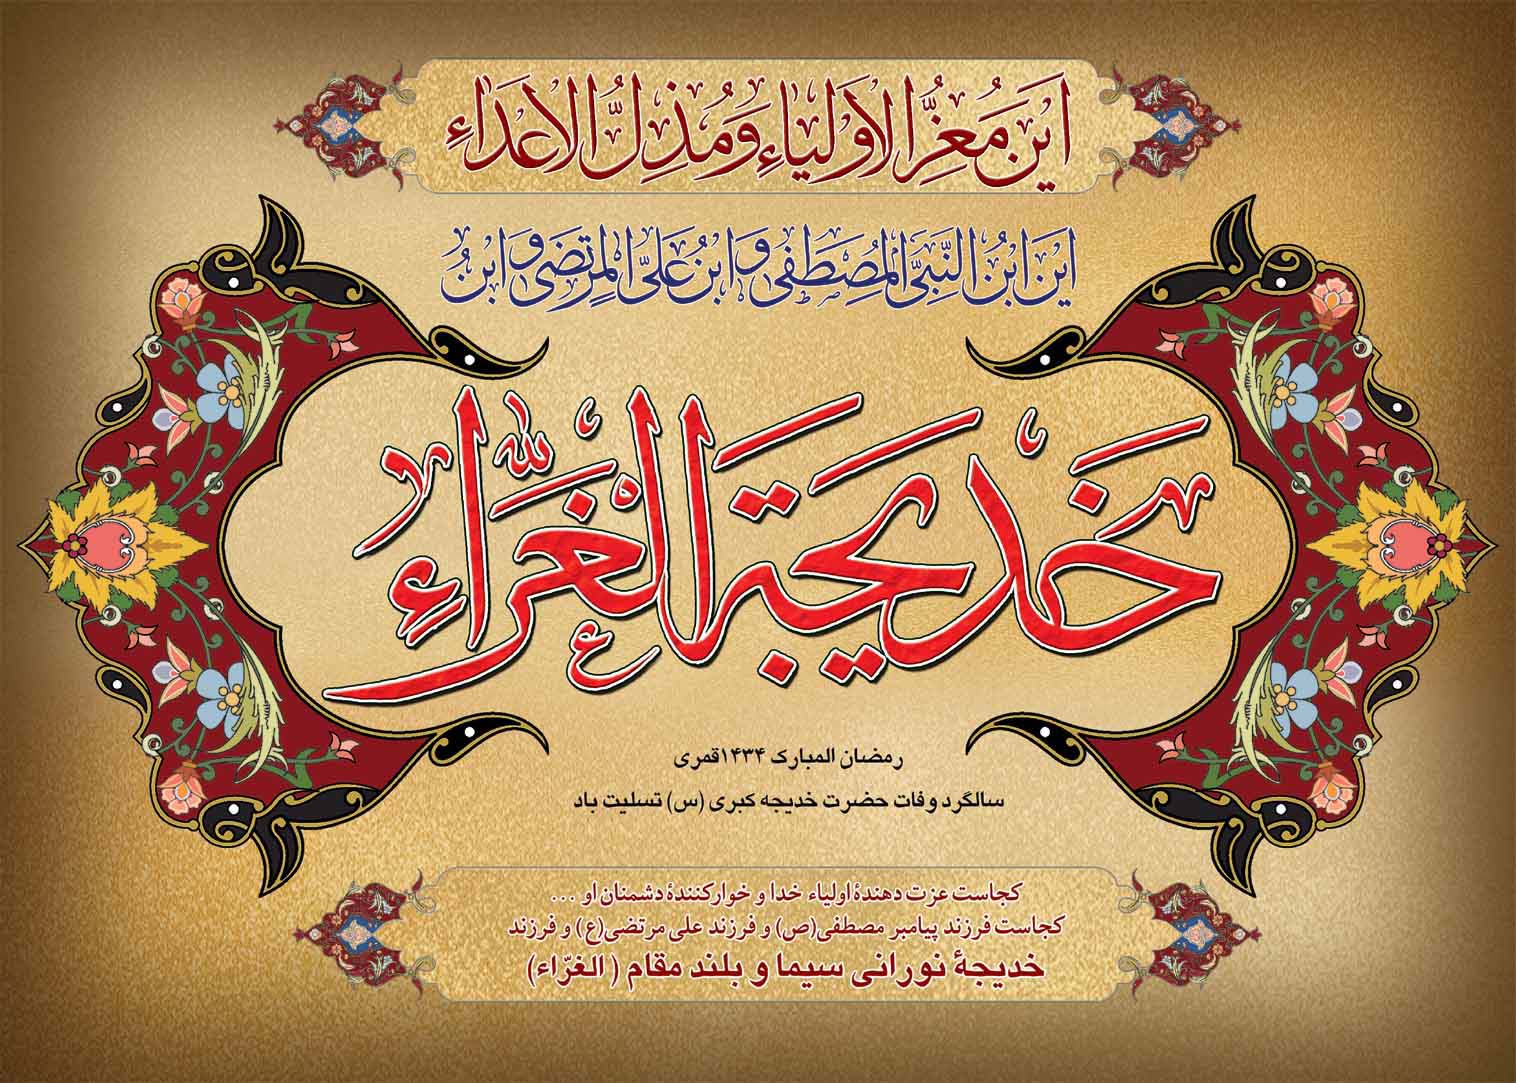 اَینَ مُعِزُّ الاَولیاءِ وَ مُذِلُّ الاَعداءِ
اَینَ ابنُ النَّبیِّ المُصطَفی وَ ابنُ عَلیِّ المُرتَضی وَ ابنُ
خَدیجَةَ الغَرّاءِ
رمضان المبارک ۱۴۳۴قمری
سالگرد وفات حضرت خدیجه کبری (س) تسلیت باد
کجاست عزت دهندهٔ اولیاء خدا و خوارکنندهٔ دشمنان او ...
کجاست فرزند پیامبر مصطفی(ص) و فرزند علی مرتضی(ع) و فرزند
خدیجهٔ نورانی سیما و بلند مقام (الغرّاء)